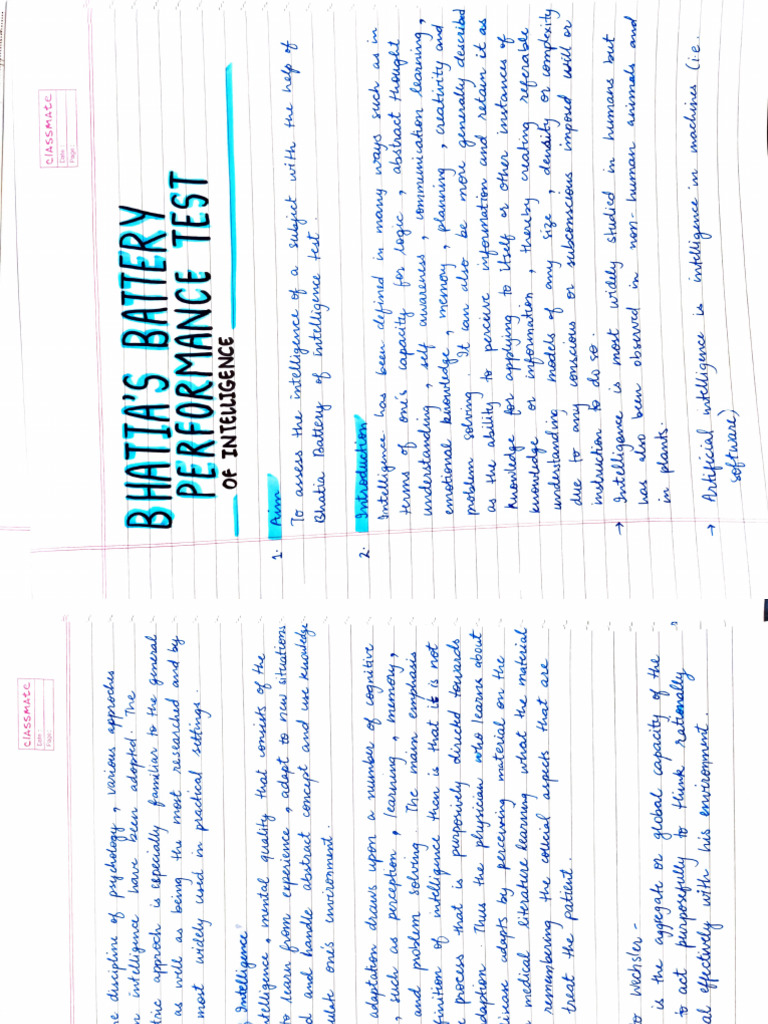 classmate
Date
Page
BHATIA'S BATTERY
PERFORMANCE TEST
OF INTELLIGENCE
1. Aim
To assess the intelligence of a subject with the help of
Bhatia Battery of intelligence test.
2. Introduction
Intelligence has been defined in many ways such as in
terms of one's capacity for logic, abstract thought
understanding, self awareness, communication learning,
emotional knowledge, memory, planning, creativity and
problem solving. It can also be more generally described
as the ability to perceive information and retain it as
knowledge for applying to itself or other instances of
knowledge or information, thereby creating referable
understanding models of any size, density or complexity
due to any conscious or subconscious imposed will or
instruction to do so.
→ Intelligence is most widely studied in humans but
has also been observed in non-human animals and
in plants.
→ Artificial intelligence is intelligence in machines (i.e.
software)
classmate
Date
Page
discipline of psychology, various approches
intelligence have been adopted. The
tric approch is especially familiar to the general
as well as being the most researched and by
most widely used in practical settings.
Intelligence"
telligence, mental quality that consists of the
to learn from experience, adapt to new situations
d and handle abstract concept and use knowledge
ulate one's environment.
adaptation draws upon a number of cognitive
, such as perception, learning, memory,
and problem solving. The main emphasis
finition of intelligence then is that it is not
process that is purposively directed towards
daption. Thus the physician who learns about
adapts by perceiving material on the
medical literature learning what the material
remembering the cducial aspects that are
treat the patient.
to Wechsler -
is the aggregate or global capacity of the
to act purposefully to think rationally
al effectively with his environment.